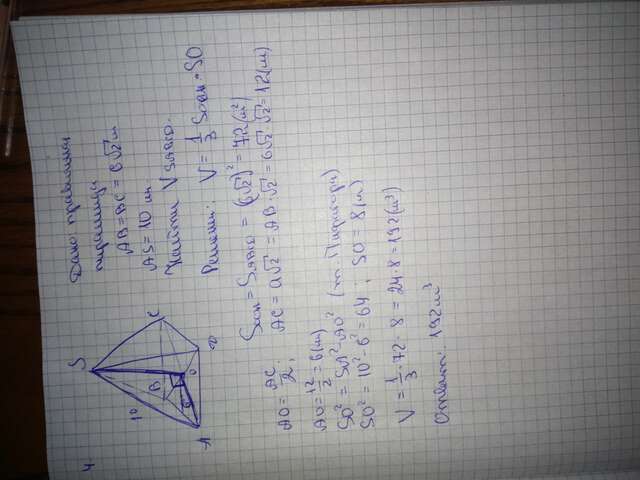 4
S
10
B
C
6
O
A
D
Дано: правильная
пирамида
AB=BC=6√2 м
AS=10 м.
Найти V SABCD.
Решение: V = 1/3 Sосн · SO
Sосн = SABCD = (6√2)² = 72 (м²)
AC = a√2 = AB·√2 = 6√2·√2 = 12 (м)
AO = AC/2;
AO = 12/2 = 6 (м)
SO² = SA² - AO² (т. Пифагора)
SO² = 10² - 6² = 64; SO = 8 (м)
V = 1/3 · 72 · 8 = 24 · 8 = 192 (м³)
Ответ: 192 м³